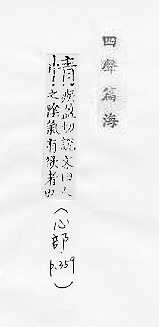 四聲篇海
疾盈切說文曰人
之陰氣有欲者也
（心部
p.359）